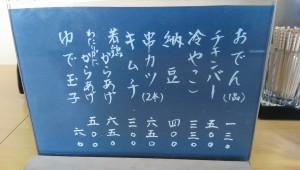 おでん(1品) 一三〇
チキンバー 五〇
冷やっこ 三〇〇
納豆 四〇〇
串カツ(2本) 六五〇
キムチ 三〇〇
若鶏からあげ 六〇〇
からあげ 五五〇
ゆで玉子 六〇